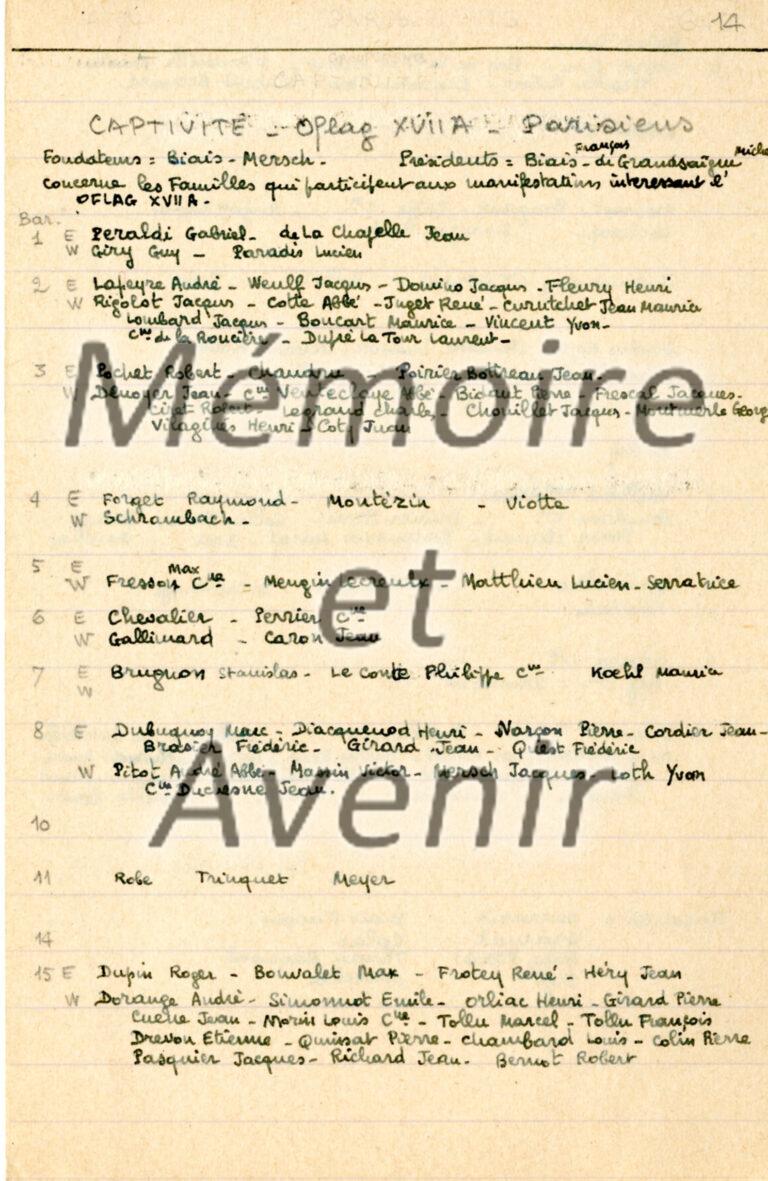 14
CAPTIVITÉ - Oflag XVII A - Parisiens
Fondateurs = Biais - Mersch - Présidents = Biais - François di Grandsaigne Michel
concerne les Familles qui participent aux manifestations interessant l'
OFLAG XVII A -
Bar.
1 E Peraldi Gabriel - de La Chapelle Jean
W Giry Guy - Paradis Lucien
2 E Lapeyre André - Weulf Jacques - Domino Jacques - Fleury Henri
W Rigolot Jacques - Cotte Abbé - Juget René - Curutchet Jean Maurice
Lombard Jacques - Boucart Maurice - Vincent Yvon -
Cne de la Roncière - Dupré La Tour Laurent -
3 E Pochet Robert - Chaudru - Poirier Botireau Jean
W Denoyer Jean - Cne Abbé - Bidaut Pierre - Frescal Jacques -
Legrand Charles - Chouillet Jacques - Montmerle Georg
Henri - Coty Juan
4 E Forget Raymond - Montézin - Viotte
W Schrambach -
5 E
W Fresson Max Cne - Mengin Lecreulx - Matthieu Lucien - Serratrice
6 E Chevalier - Perrier Cne
W Gallimard - Caron Jean
7 E Brugnon Stanislas - Le Conte Philippe Cne Koehl Maurice
W
8 E Dubuquoy Marc - Diacquenod Henri - Narçon Pierre - Cordier Jean -
Brasier Frédéric - Girard Jean - Frédéric
W Pitot André Abbé - Massin Victor - Mersch Jacques - Loth Yvon
Cne Duchesne Jean.
10
11 Robe Trinquet Meyer
14
15 E Dupin Roger - Bouvalet Max - Frotey René - Héry Jean
W Dorange André - Simonnot Emile - Orliac Henri - Girard Pierre
Jean - Morin Louis Cne - Tollu Marcel - Tollu François
Drevon Etienne - Quinsat Pierre - Chambard Louis - Colin Pierre
Pasquier Jacques - Richard Jean - Bernot Robert
Mémoire
et
Avenir